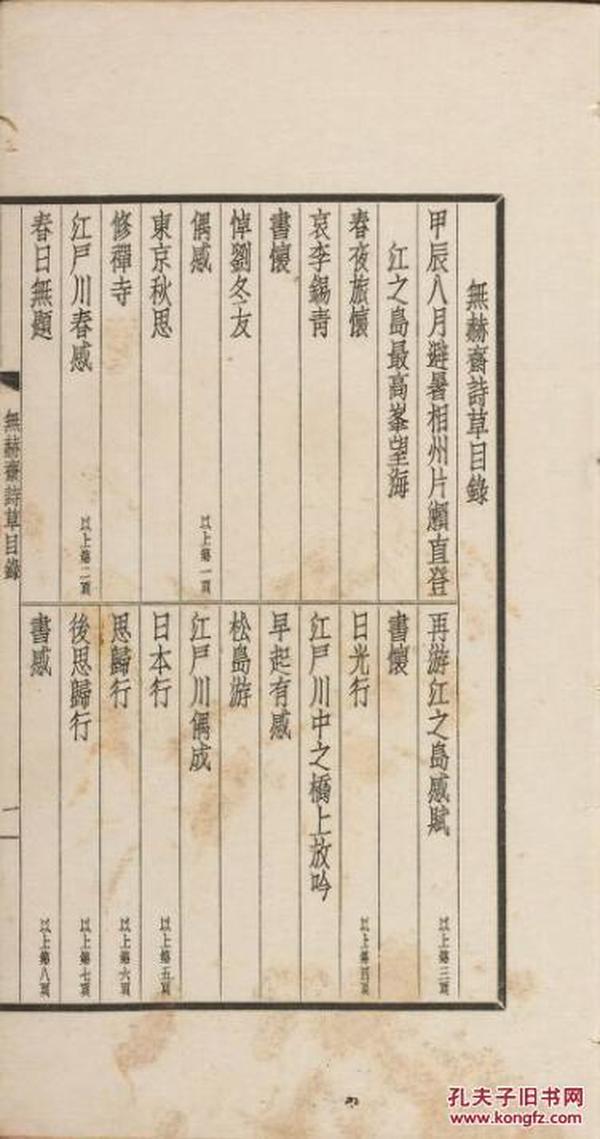 無赫齋詩草目錄
甲辰八月避暑相州片瀨直登
江之島最高峯望海
春夜旅懷
哀李錫青 以上第一頁
書懷
悼劉冬友
偶感
東京秋思
修禪寺
江戶川春感 以上第二頁
春日無題
再游江之島感賦 以上第三頁
書懷
日光行 以上第四頁
江戶川中之橋上放吟
早起有感
松島游
江戶川偶成
日本行 以上第五頁
思歸行 以上第六頁
後思歸行 以上第七頁
書感 以上第八頁
無赫齋詩草目錄
一
孔夫子旧书网
www.kongfz.com